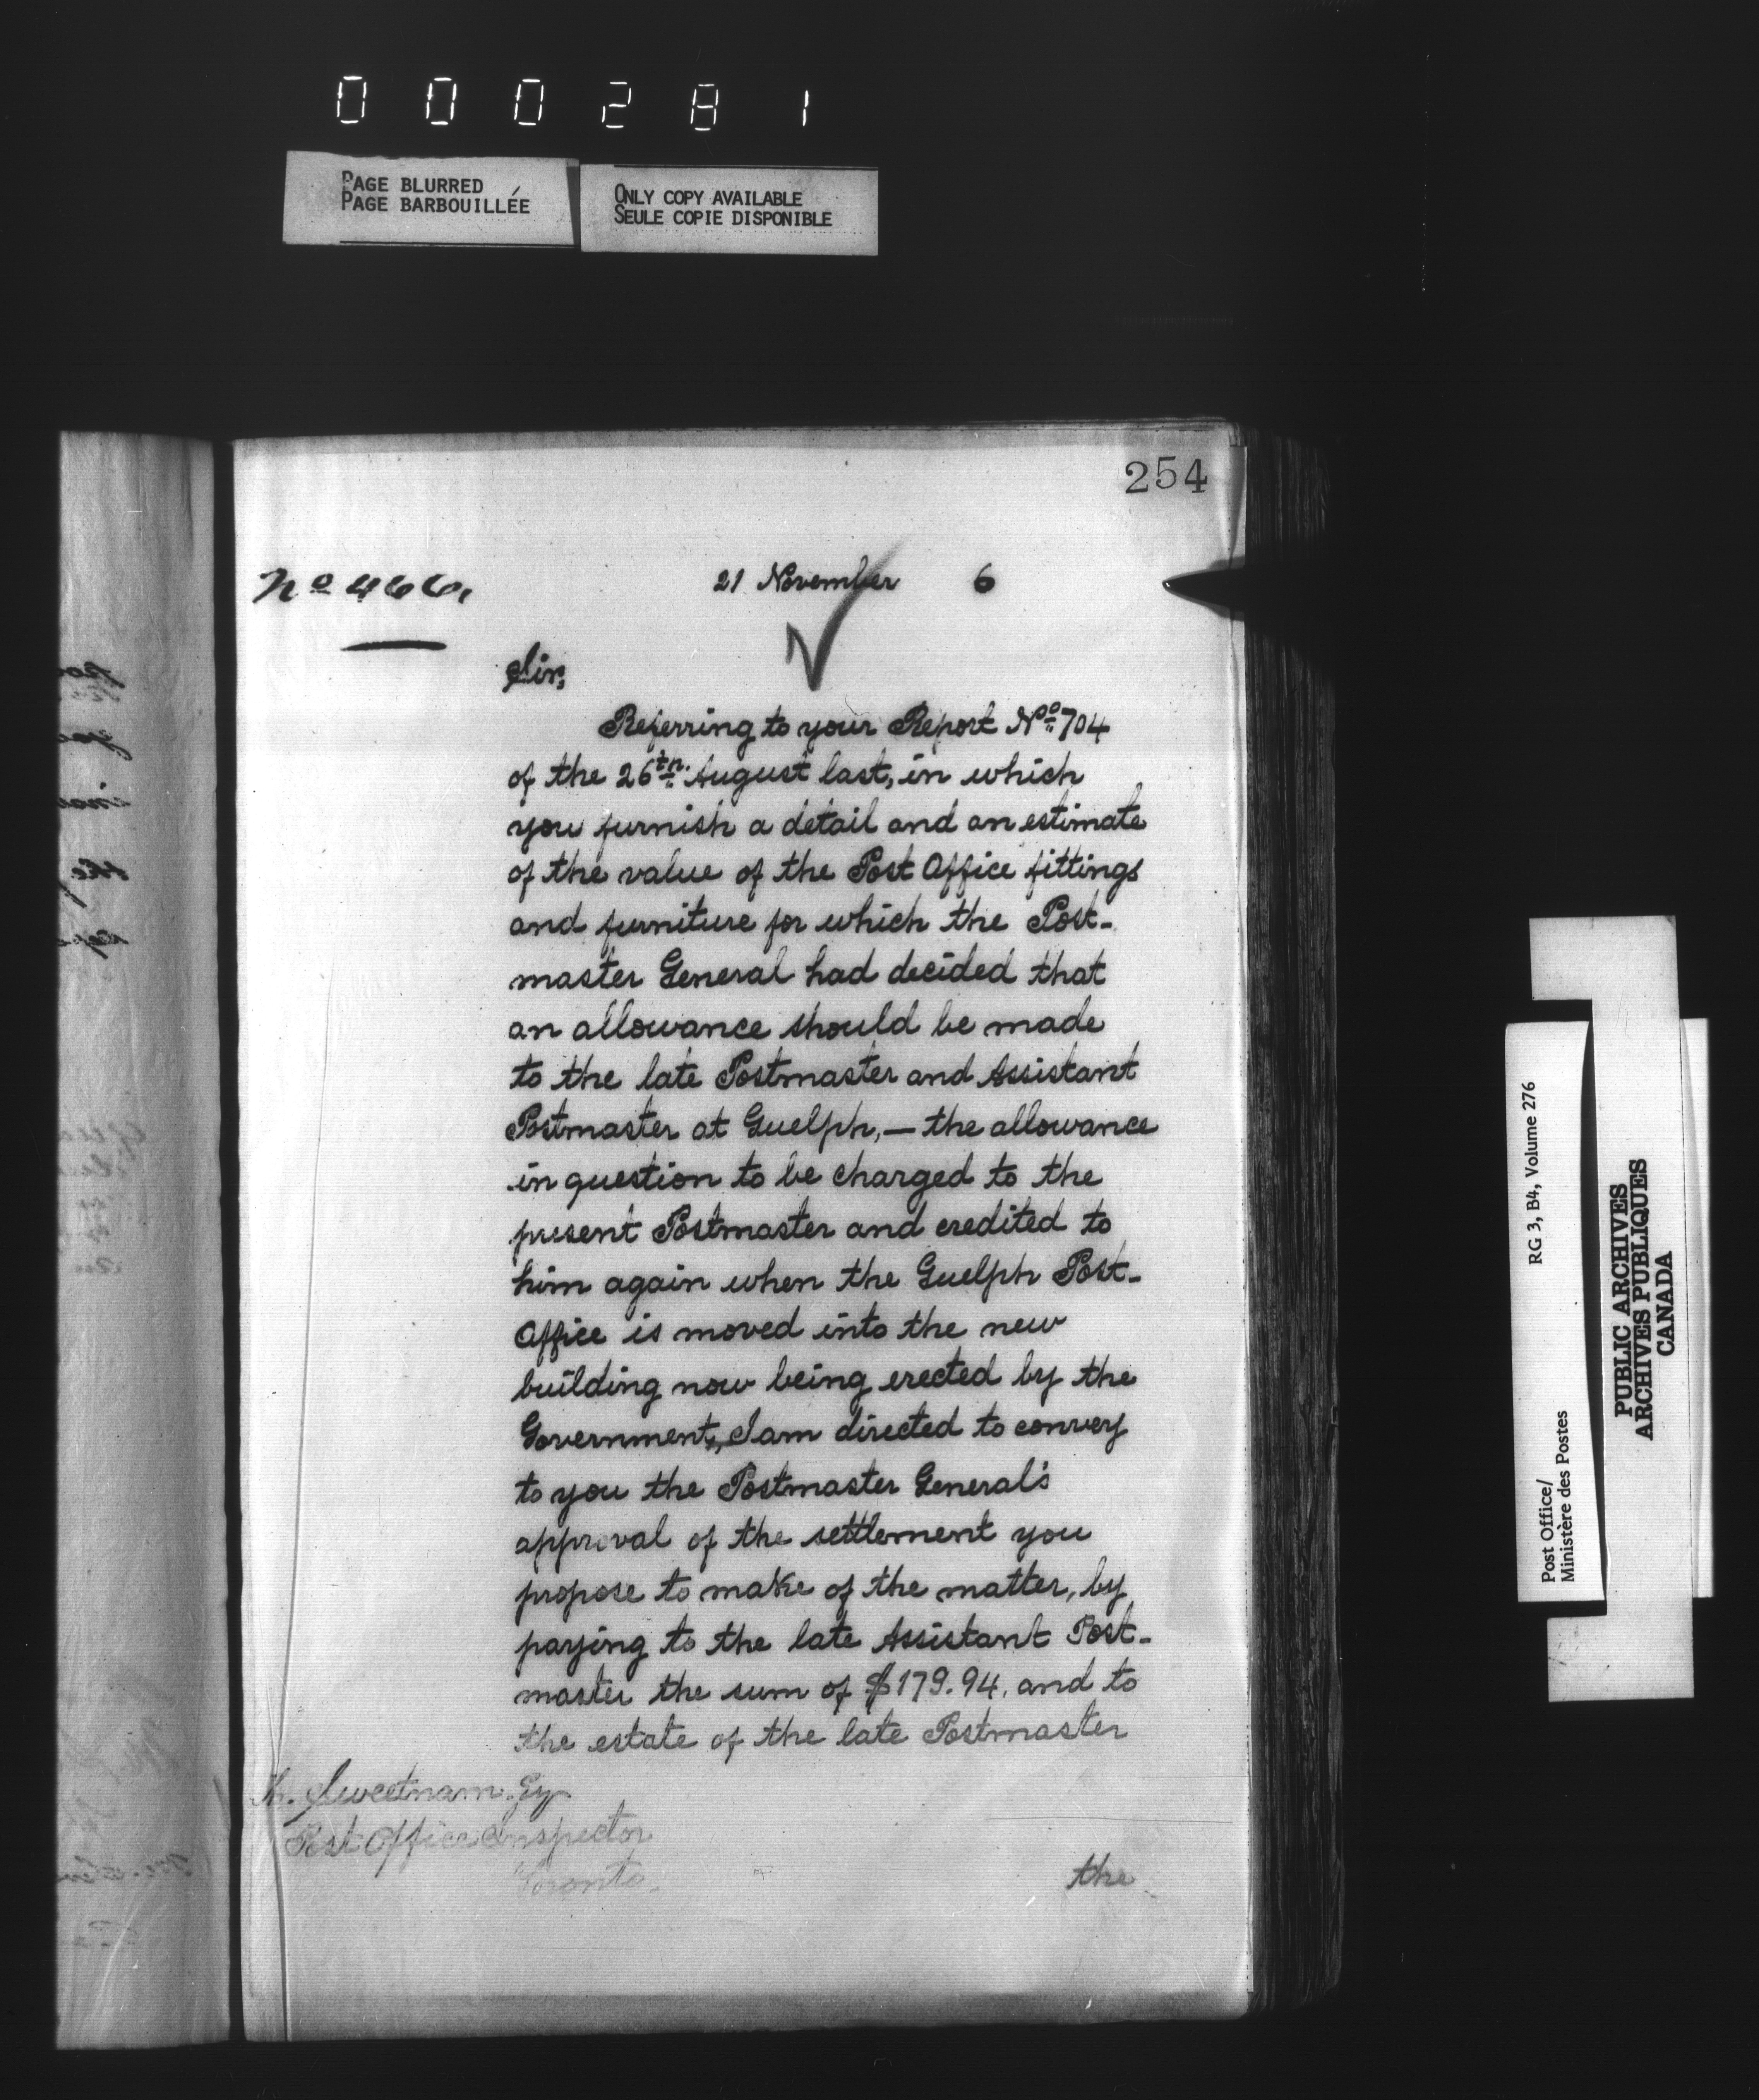 000281
PAGE BLURRED
PAGE BARBOUILLÉE
ONLY COPY AVAILABLE
SEULE COPIE DISPONIBLE
254
No 466.
21 November 6
Sir,
Referring to your Report No. 704
of the 26th. August last, in which
you furnish a detail and an estimate
of the value of the Post Office fittings
and furniture for which the Post-
master General had decided that
an allowance should be made
to the late Postmaster and Assistant
Postmaster at Guelph, — the allowance
in question to be charged to the
present Postmaster and credited to
him again when the Guelph Post-
Office is moved into the new
building now being erected by the
Government, I am directed to convey
to you the Postmaster General's
approval of the settlement you
propose to make of the matter, by
paying to the late Assistant Post-
master the sum of $179.94, and to
the estate of the late Postmaster
Sweetnam
Post Office Inspector
Toronto.
the
RG 3, B4, Volume 276
Post Office/
Ministère des Postes
PUBLIC ARCHIVES
ARCHIVES PUBLIQUES
CANADA